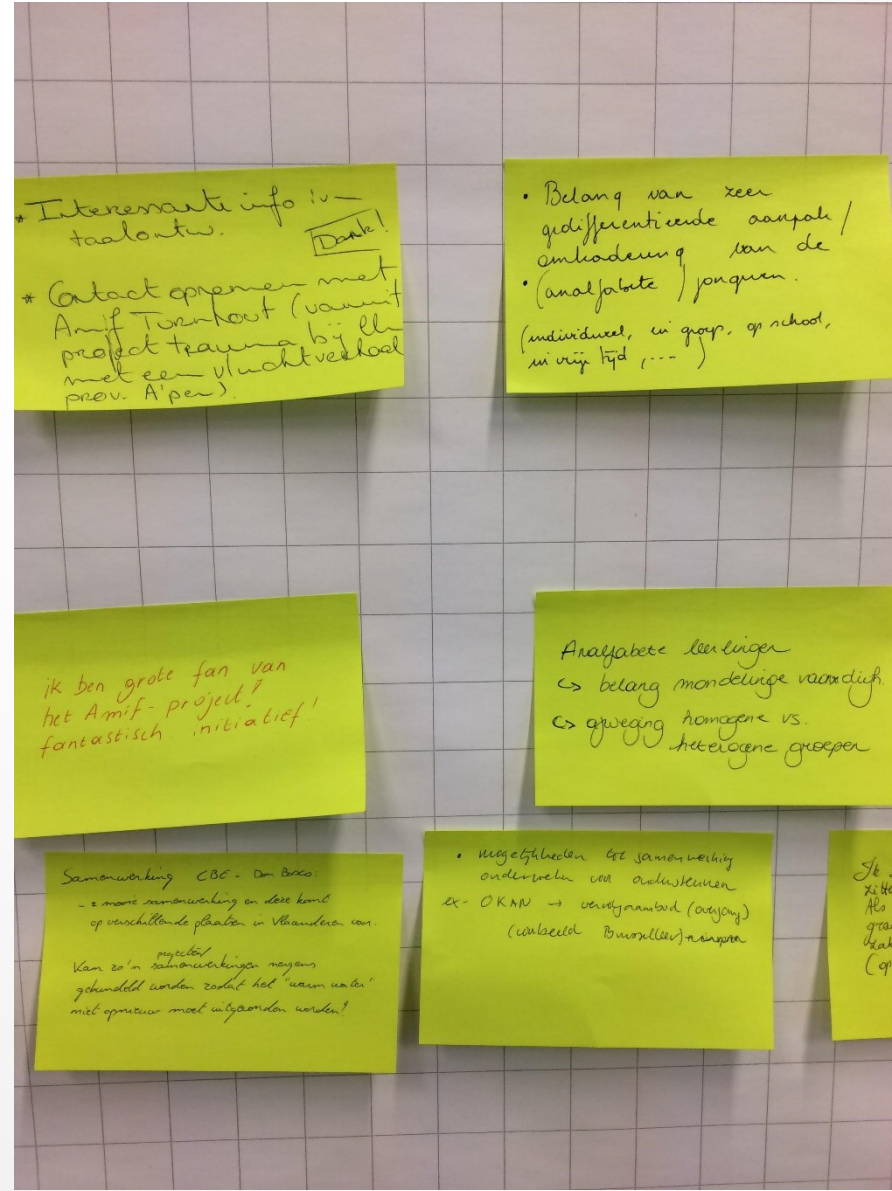 * Interessante info iv-
taalontw.
Dank!
* Contact opnemen met
Amif Turnhout (vanuit
project trauma bij lln
met een vluchtverhaal
prov. A'pen).
• Belang van zeer
gedifferentieerde aanpak /
omkadering van de
• (analfabete) jongeren.
(individueel, in groep, op school,
in vrije tijd, ...)
ik ben grote fan van
het Amif-project!
fantastisch initiatief!
Analfabete leerlingen
↳ belang mondelinge vaardigh.
↳ afweging homogene vs.
heterogene groepen
Samenwerking CBE - Don Bosco:
- mooie samenwerking en deze komt
op verschillende plaatsen in Vlaanderen voor.
projecten/
Kan zo'n samenwerkingen nergens
gebundeld worden zodat het "warm water"
niet opnieuw moet uitgevonden worden?
• mogelijkheden tot samenwerking
ex- OKAN → vervolgaanbod (overgang)
Ik
zitte
Als
(op